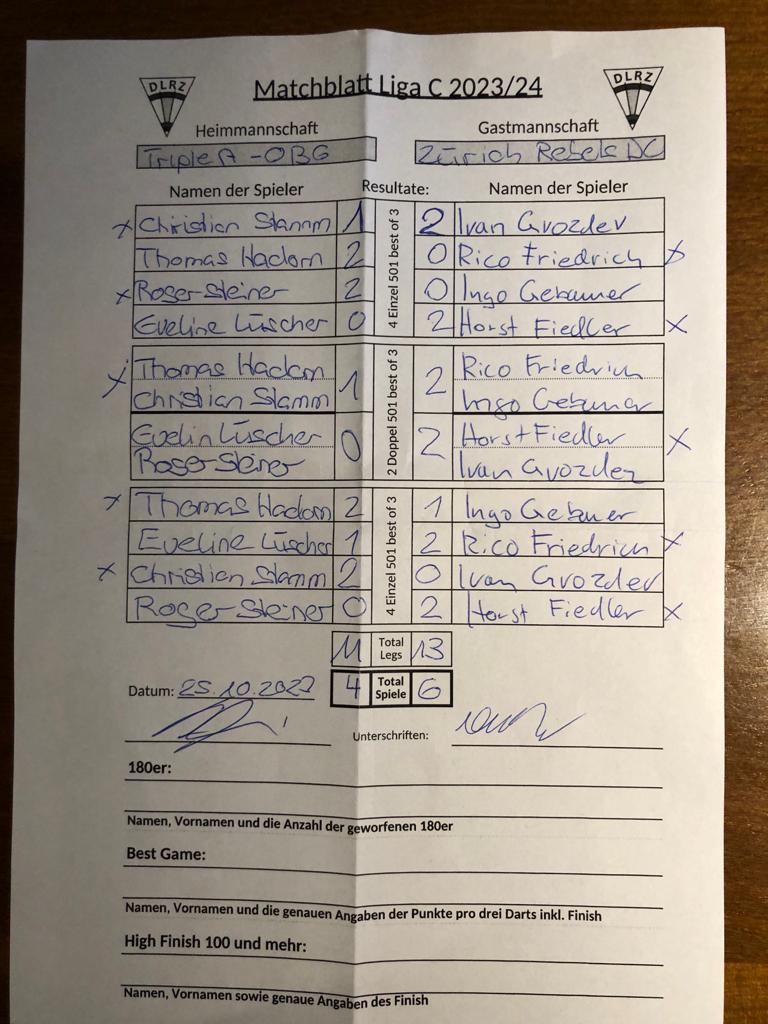 DLRZ Matchblatt Liga C 2023/24 DLRZ
Heimmannschaft Gastmannschaft
Triple A - OBG Zürich Rebels DC
Namen der Spieler Resultate: Namen der Spieler
x Christian Stamm 1 2 Ivan Gvozdev
Thomas Hadorn 2 0 Rico Friedrich x
x Roger Steiner 2 0 Ingo Gebauer
Eveline Lüscher 0 2 Horst Fiedler x
4 Einzel 501 best of 3
x Thomas Hadorn 1 2 Rico Friedrich
Christian Stamm Ingo Gebauer
Evelin Lüscher 0 2 Horst Fiedler x
Roger Steiner Ivan Gvozdev
2 Doppel 501 best of 3
x Thomas Hadorn 2 1 Ingo Gebauer
Eveline Lüscher 1 2 Rico Friedrich x
x Christian Stamm 2 0 Ivan Gvozdev
Roger Steiner 0 2 Horst Fiedler x
4 Einzel 501 best of 3
11 Total Legs 13
Datum: 25.10.2023 4 Total Spiele 6
Unterschriften:
180er:
Namen, Vornamen und die Anzahl der geworfenen 180er
Best Game:
Namen, Vornamen und die genauen Angaben der Punkte pro drei Darts inkl. Finish
High Finish 100 und mehr:
Namen, Vornamen sowie genaue Angaben des Finish